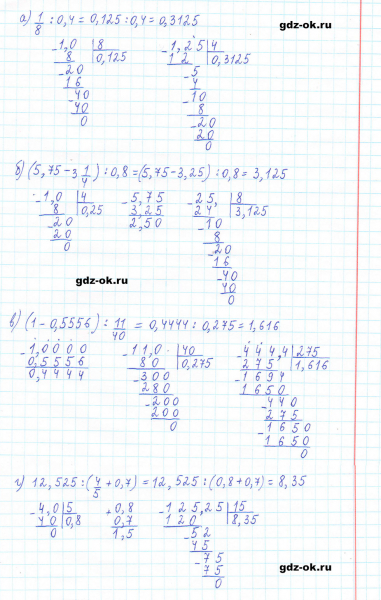 gdz-ok.ru
а) 1/8 : 0,4 = 0,125 : 0,4 = 0,3125
-1,0 | 8
8 | 0,125
-20
16
-40
40
0
-1,25 | 4
12 | 0,3125
-5
4
-10
8
-20
20
0
б) (5,75 - 3 1/4) : 0,8 = (5,75 - 3,25) : 0,8 = 3,125
-1,0 | 4
8 | 0,25
-20
20
0
-5,75
3,25
2,50
-25, | 8
24 | 3,125
-10
8
-20
16
-40
40
0
gdz-ok.ru
gdz-ok.ru
в) (1 - 0,5556) : 11/40 = 0,4444 : 0,275 = 1,616
-1,0000
0,5556
0,4444
-11,0 | 40
80 | 0,275
-300
280
-200
200
0
-444,4 | 275
275 | 1,616
-1694
1650
-440
275
-1650
1650
0
г) 12,525 : (4/5 + 0,7) = 12,525 : (0,8 + 0,7) = 8,35
-4,0 | 5
40 | 0,8
0
+0,8
0,7
1,5
-125,25 | 15
120 | 8,35
-52
45
-75
75
0
gdz-ok.ru